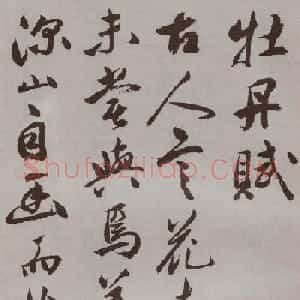 牡丹賦
古人言花
未嘗與焉
深山自幽而
Shufaziliao.com